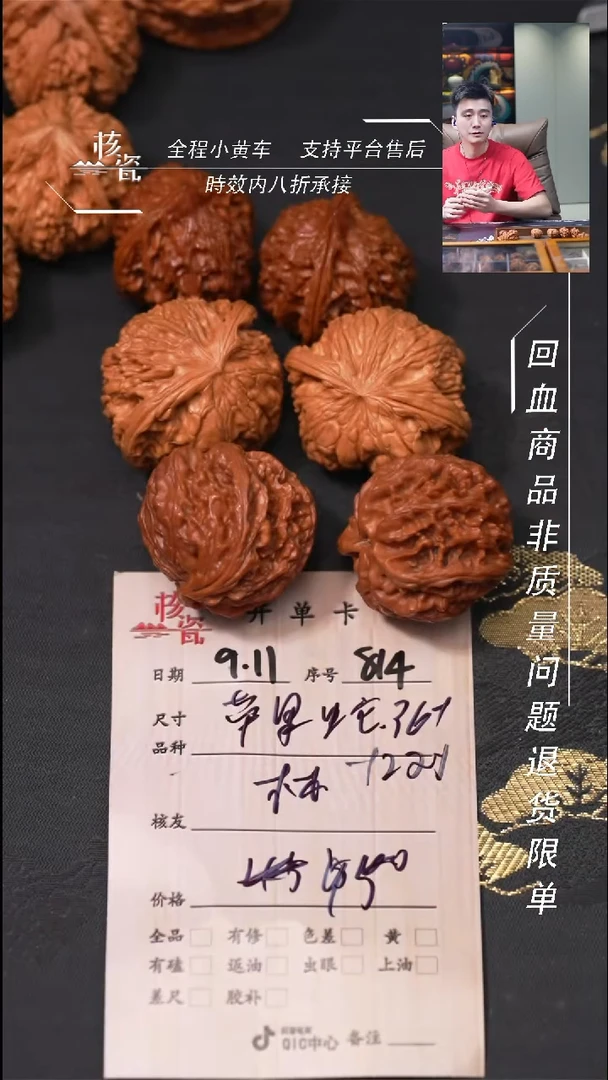 核瓷
全程小黄车 支持平台售后
時效内八折承接
回血商品非质量问题退货限单
核瓷
开单卡
日期 9.11 序号 814
尺寸
品种
核友
价格
全品 有修 色差 黄
有磕 返油 虫眼 上油
差尺 胶补
QIC中心 备注